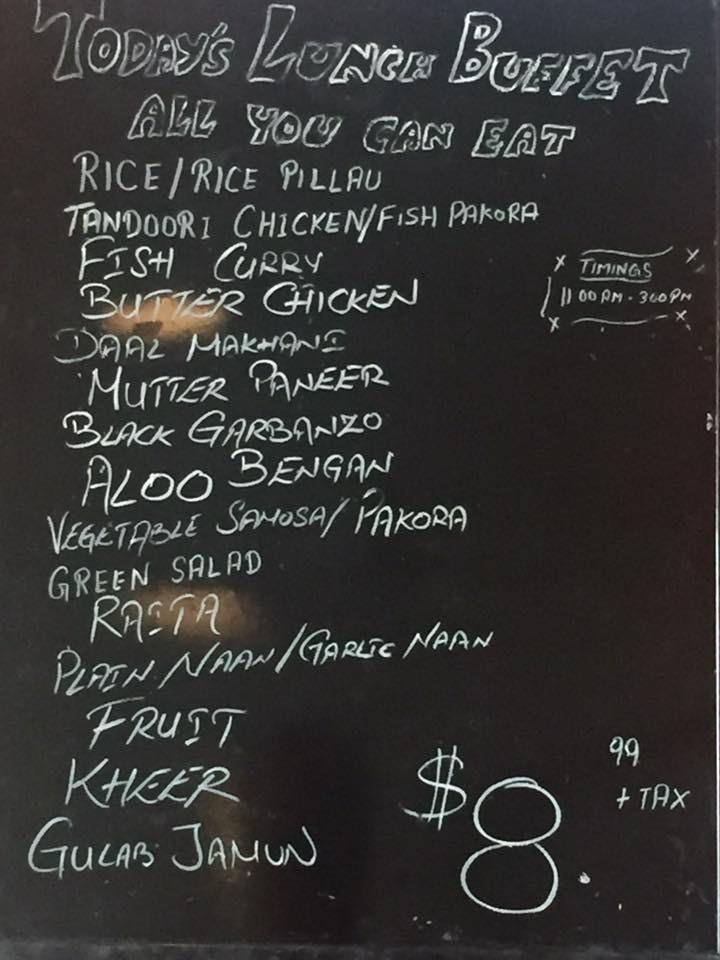 TODAY'S LUNCH BUFFET
ALL YOU CAN EAT
RICE/RICE PILLAU
TANDOORI CHICKEN/FISH PAKORA
FISH CURRY
BUTTER CHICKEN
DAAL MAKHANI
MUTTER PANEER
BLACK GARBANZO
ALOO BENGAN
VEGETABLE SAMOSA/PAKORA
GREEN SALAD
RAITA
PLAIN NAAN/GARLIC NAAN
FRUIT
KHEER
GULAB JAMUN
TIMINGS
11 00 AM - 3 00 PM
$8.99
+ TAX